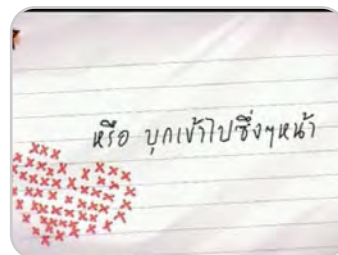 หรือ บุกเข้าไปซึ่งๆหน้า